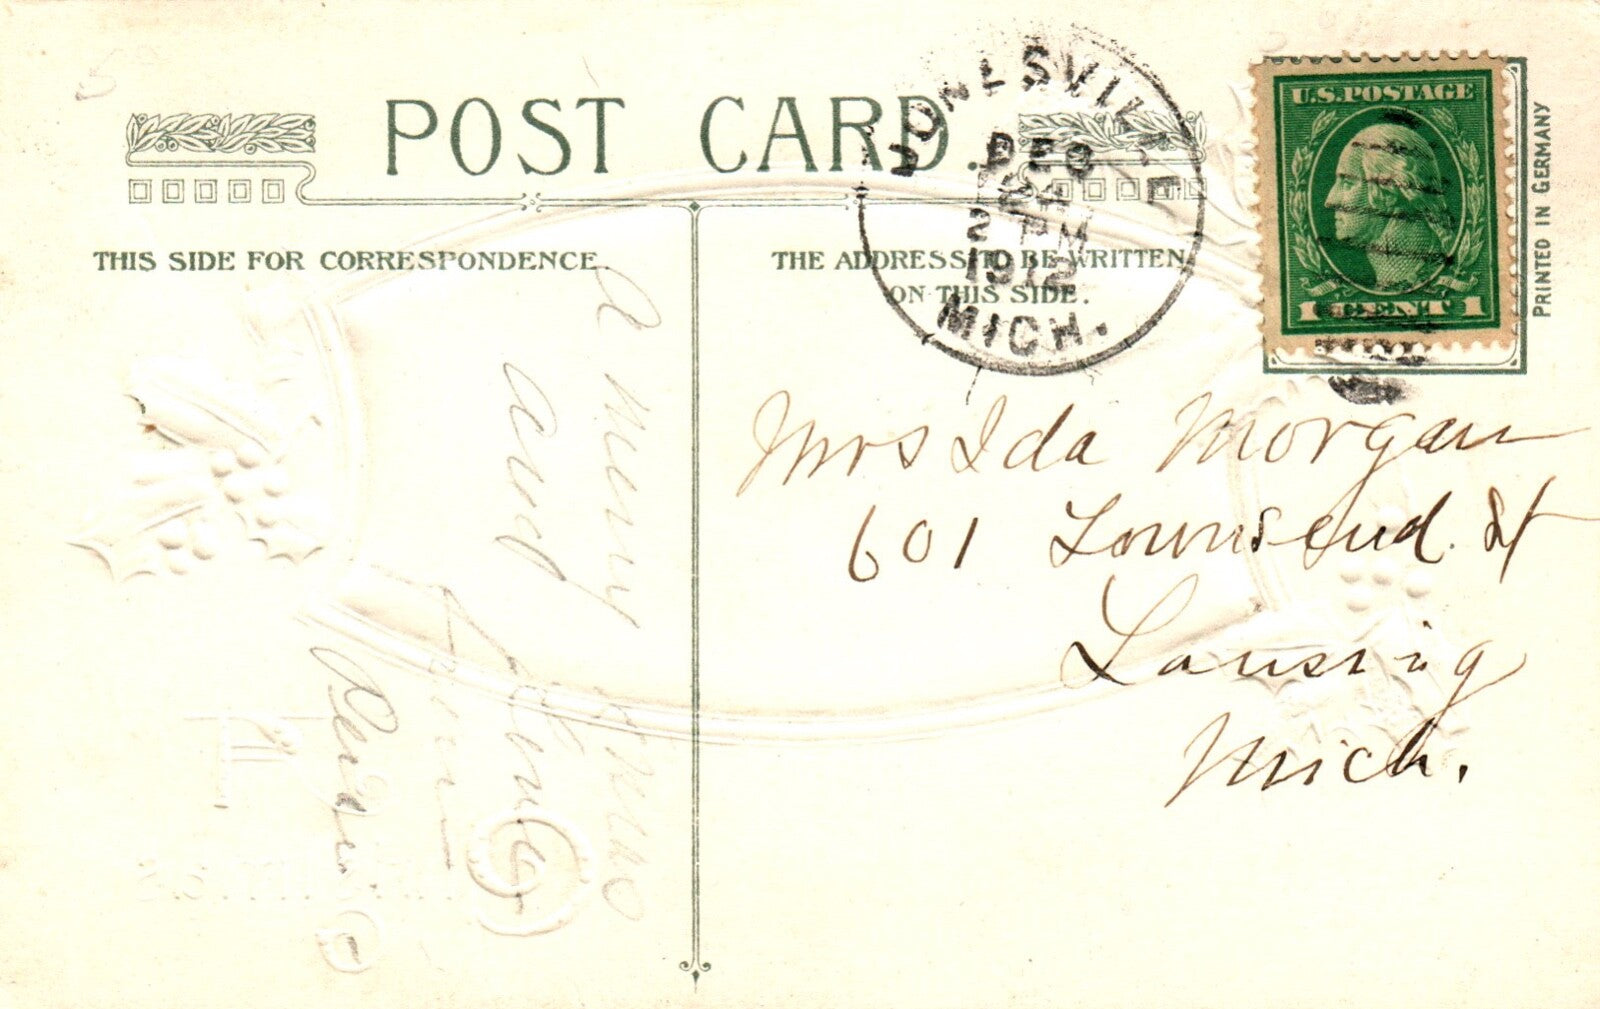 POST CARD.
THIS SIDE FOR CORRESPONDENCE.
THE ADDRESS TO BE WRITTEN
ON THIS SIDE.
JONESVILLE
DEC
24
2 PM
1912
MICH.
U.S.POSTAGE
1 CENT 1
PRINTED IN GERMANY
A Merry Xmas
and
from
Mrs Ida Morgan
601 Townsend. St
Lansing
Mich.